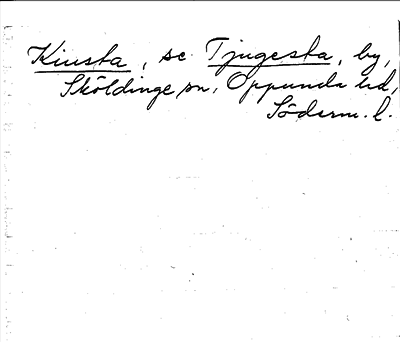 Kiusta, se Tjugesta, by,
Sköldinge sn, Oppunda hd,
Söderm. l.